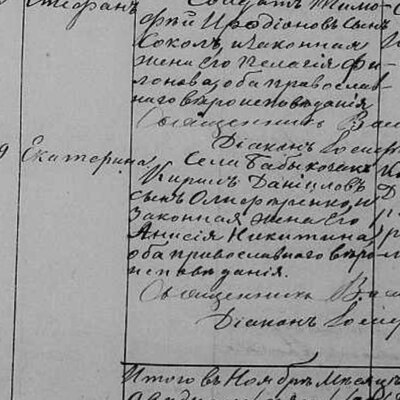 Стефанъ
Солдатъ Тимо-
фей Иродіоновъ сынъ
Соколъ, и законная
жена его Пелагія Фи-
лонова, оба православ-
наго вѣроисповѣданія
Священникъ Вас
Діаконъ Іосиф
9 Екатерина
Села Бабы козакъ
Кирилъ Даніиловъ
сынъ и
Законная жена его
Анисія Никитина
оба православнаго вѣро-
исповѣданія.
Священникъ Вас
Діаконъ Іосиф
Итого въ Ноябрѣ Мѣсяцѣ